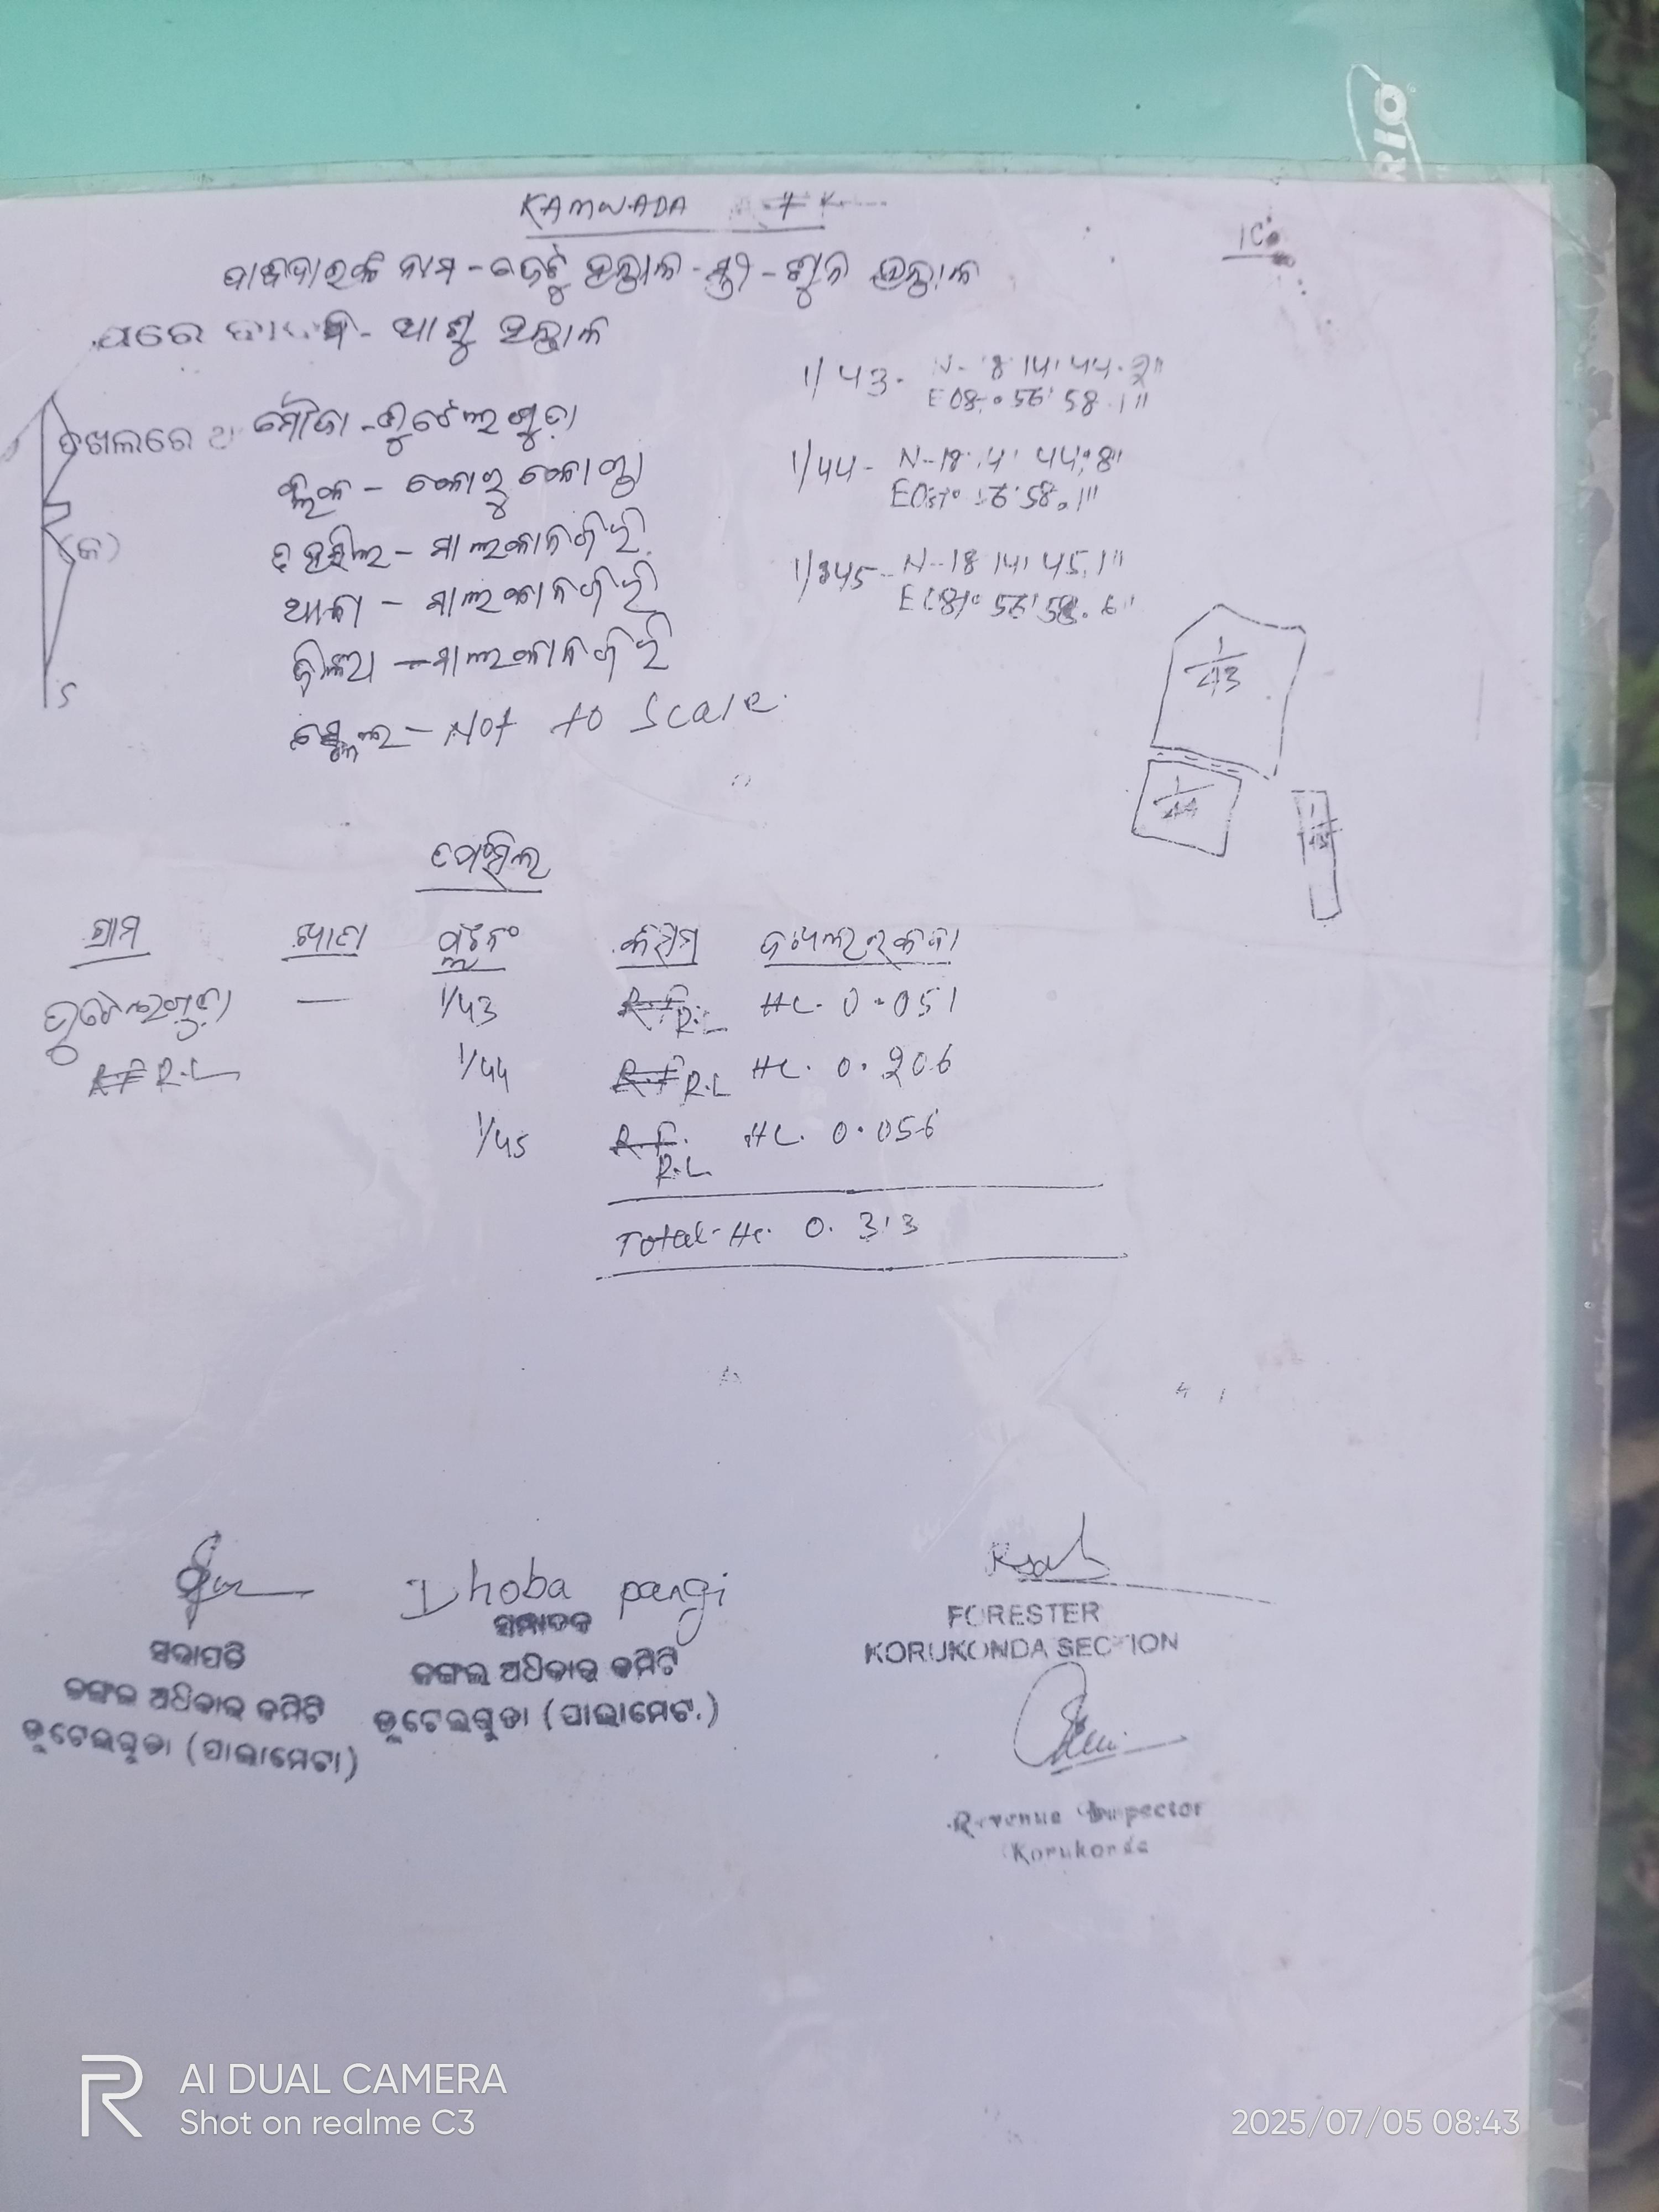 RIO
KAMWADA
10
ଦାବୀଦାରଙ୍କ ନାମ - ଜେଟୁ ହନ୍ତାଳ - ସ୍ତ୍ରୀ - ଶୁକ୍ରି ହନ୍ତାଳ
ଘରେ - ଆଶୁ ହନ୍ତାଳ
1/43- N- 14' 44.2"
56' 58.1"
ଦଖଲରେ ମୌଜା - ଡୁଟେଲଗୁଡ଼ା
1/44- N-18 14' 44.8"
58.1"
ବ୍ଲକ - କୋରୁକୋଣ୍ଡା
(କ)
ତହସିଲ - ମାଲକାନଗିରି
1/45- N-18 14' 45.1"
56' 58.6"
ଥାନା - ମାଲକାନଗିରି
ଜିଲ୍ଲା - ମାଲକାନଗିରି
S
ସ୍କେଲ - Not to Scale
1/43
1/44
ତପସିଲ
ଗ୍ରାମ ଖାତା ପ୍ଲଟନଂ କିସମ ଦଖଲରକବା
ଡୁଟେଲଗୁଡ଼ା — 1/43 R.F. R.L HC. 0.051
R.F R.L 1/44 R.F R.L HC. 0.206
1/45 R.F. R.L HC. 0.056
Total- Hc. 0.313
Dhoba pangi
ସଭାପତି
ଜଙ୍ଗଲ ଅଧିକାର କମିଟି
ଡୁଟେଲଗୁଡା (ପାଲାମେଟା)
ସମ୍ପାଦକ
ଜଙ୍ଗଲ ଅଧିକାର କମିଟି
ଡୁଟେଲଗୁଡା (ପାଲାମେଟା)
FORESTER
KORUKONDA SECTION
Revenue Inspector
Korukonda
R
AI DUAL CAMERA
Shot on realme C3
2025/07/05 08:43